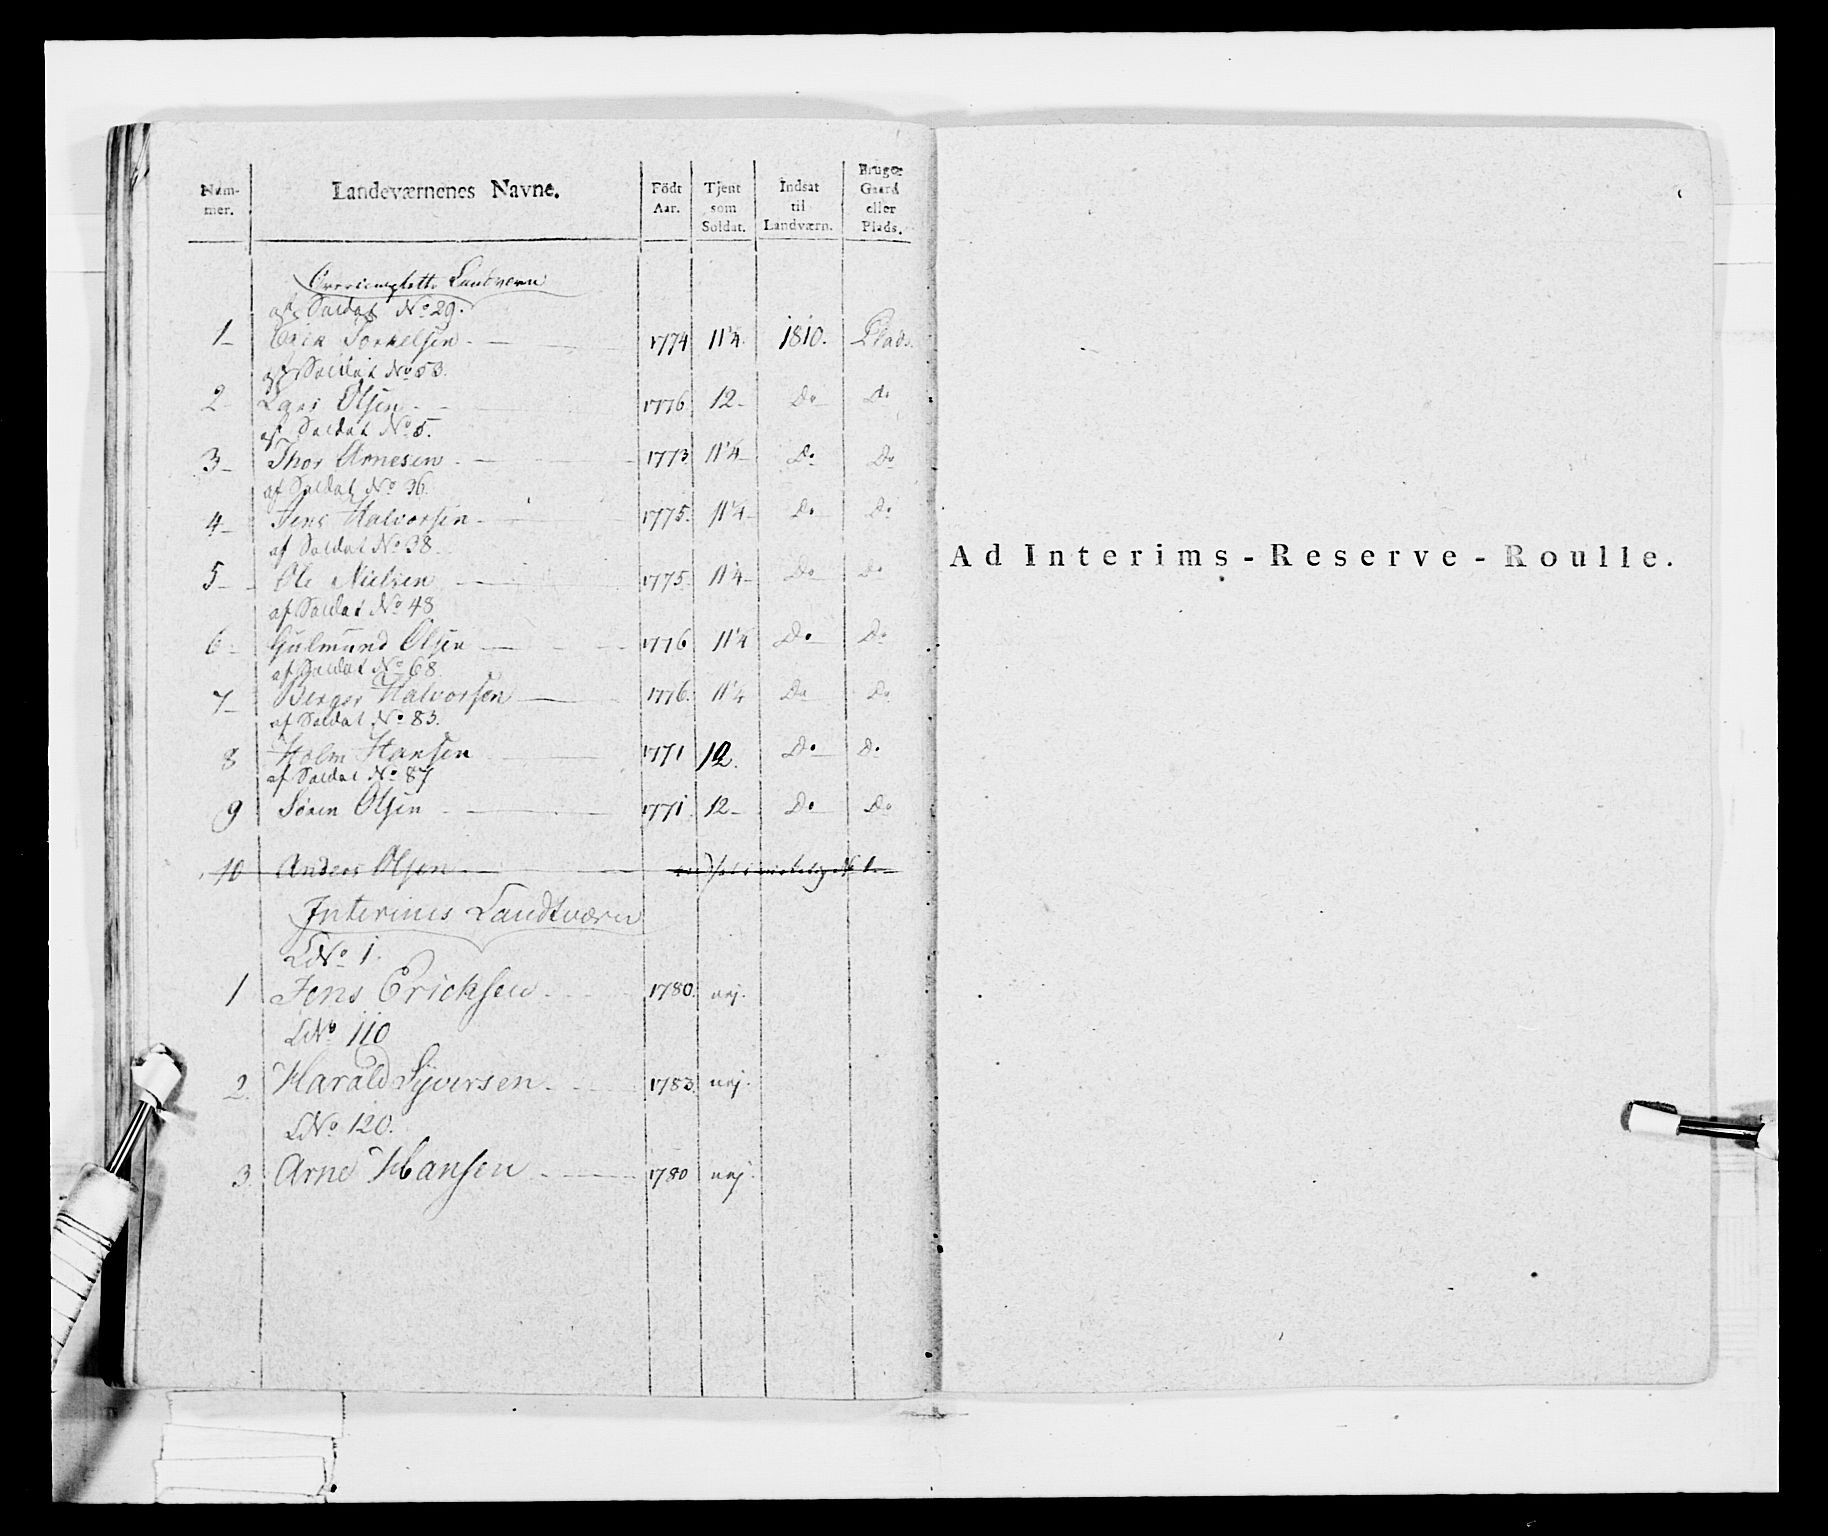 Num-mer. Landeværnenes Navne. Födt Aar. Tjent som Soldat. Indsat til Landværn. Bruger Gaard eller Plads.
Overcomplette Landværn
af Soldat No 29.
1 Erick Torkelsen 1774 11 1/4 1810. Plads.
af Soldat No 53.
2 Lars Olsen 1776 12 Do Do
af Soldat No 5.
3 Thor Arnesen 1773 11 1/4 Do Do
af Soldat No 36.
4 Jens Halvorsen 1775. 11 1/4 Do Do
af Soldat No 38.
5 Ole Nielsen 1775. 11 1/4 Do Do
af Soldat No 48
6 Gulmund Olsen 1776 11 1/4 Do Do
af Soldat No 68
7 Berger Halvorsen 1776. 11 1/4 Do Do
af Soldat No 83.
8 Holm Hansen 1771 12. Do Do
af Soldat No 87
9 Søren Olsen 1771. 12 Do Do
10 Anders Olsen
Interims Landtværn
LNo 1.
1 Jens Ericksen 1780. nej.
LNo 110
2. Harald Syversen 1783. nej.
LNo 120.
3. Arne Hansen 1780 nej.
Ad Interims-Reserve-Roulle.